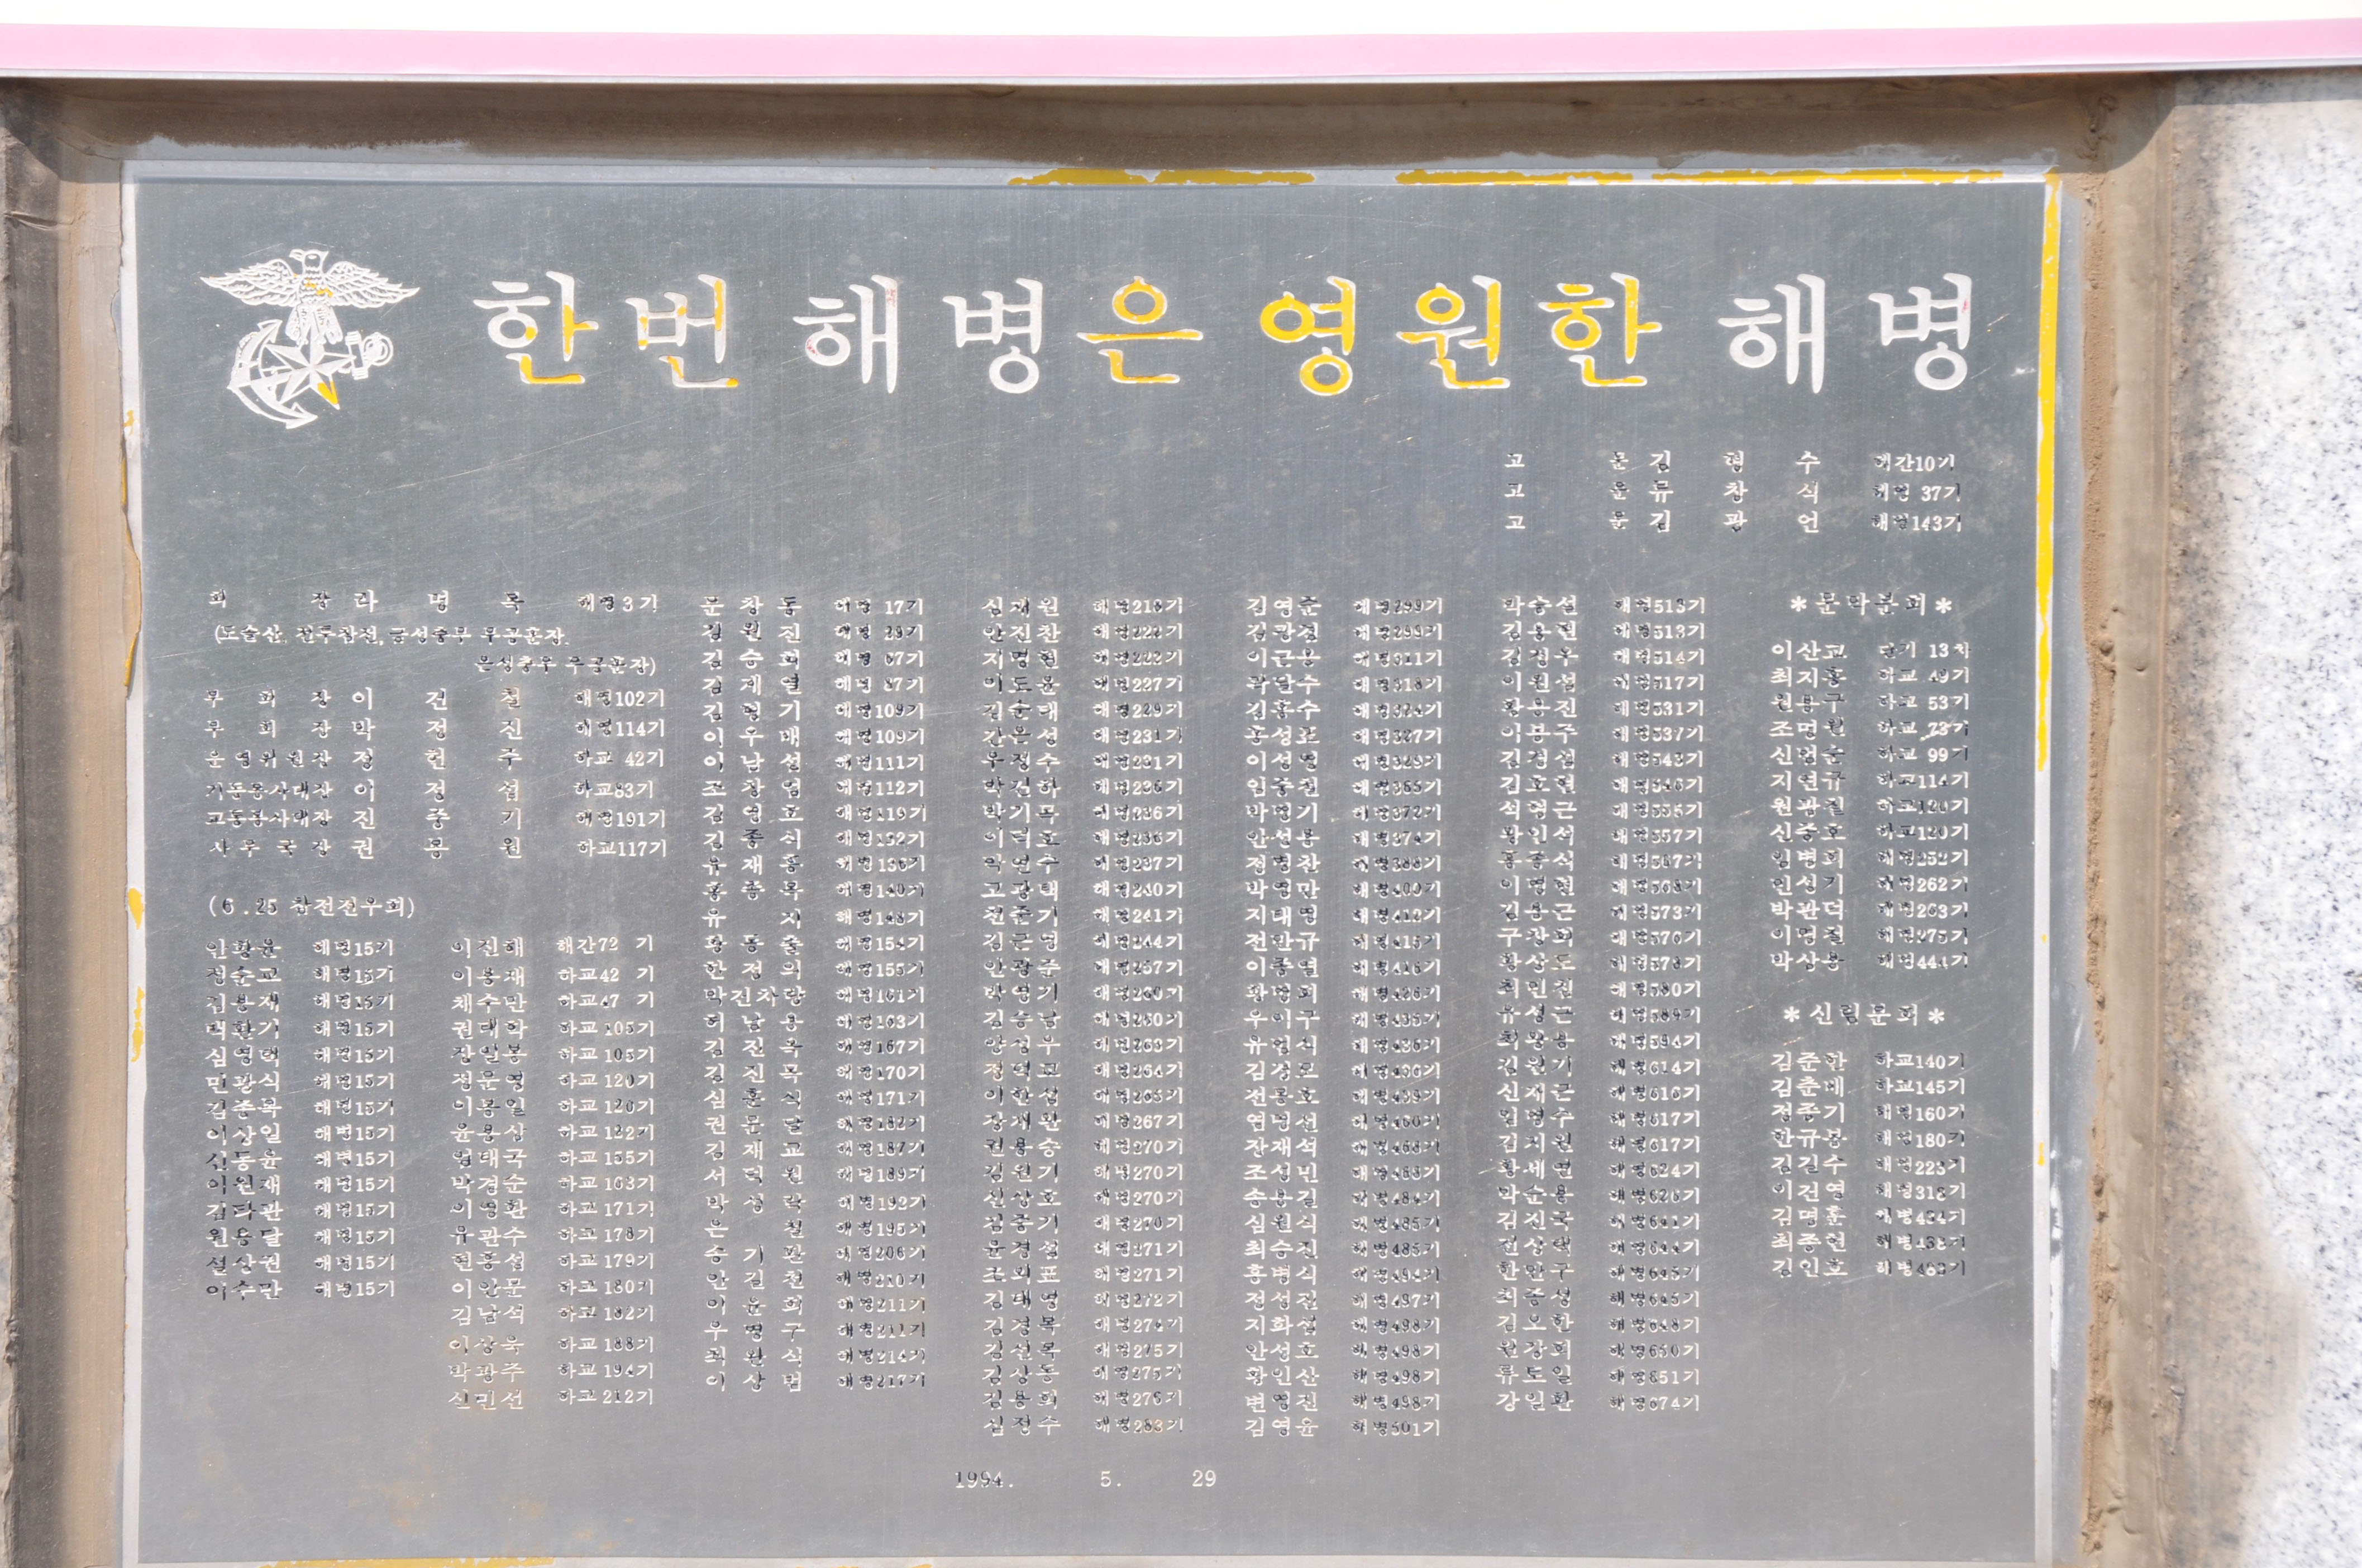 한번 해병은 영원한 해병
고 문 김 형 수 해간10기
고 문 류 창 식 해병 37기
고 문 김 광 언 해병143기
회 장 라 명 목 해병3기
(도솔산, 전투참전, 금성충무 무공훈장,
은성충무 무공훈장)
부 회 장 이 건 철 해병102기
부 회 장 박 정 진 해병114기
운영위원장 정 헌 주 하교 42기
기동봉사대장 이 정 섭 하교83기
교통봉사대장 진 중 기 해병191기
사무국장 권 봉 원 하교117기
(6.25 참전전우회)
안황윤 해병15기
정순교 해병15기
김용재 해병15기
백환기 해병15기
심영택 해병15기
민광식 해병15기
김종목 해병15기
이상일 해병15기
신동윤 해병15기
이원재 해병15기
해병15기
원용달 해병15기
설상권 해병15기
이수만 해병15기
이진해 해간72 기
이봉재 하교42 기
채수만 하교47 기
권대학 하교105기
장일봉 하교105기
정운영 하교120기
이봉일 하교120기
윤용상 하교122기
엄태국 하교155기
박경순 하교163기
이영환 하교171기
유관수 하교178기
현흥섭 하교179기
이안문 하교180기
김남석 하교182기
이상욱 하교188기
박광주 하교194기
신민선 하교212기
문 창 동 해병 17기
김 원 진 해병 29기
김 승 회 해병 67기
김 계 열 해병 87기
김 평 기 해병109기
이 우 매 해병109기
이 남 섭 해병111기
조 장 엄 해병112기
김 영 호 해병119기
김 종 식 해병132기
유 재 흥 해병136기
홍 종 목 해병140기
유 지 해병148기
황 동 출 해병154기
한 정 의 해병155기
박긴차랑 해병161기
허 남 용 해병163기
김 진 옥 해병167기
김 진 목 해병170기
심 훈 식 해병171기
권 문 달 해병182기
김 재 교 해병187기
서 덕 원 해병189기
박 성 락 해병192기
은 철 해병195기
승 기 판 해병206기
안 길 천 해병210기
이 윤 희 해병211기
우 영 구 해병211기
최 완 식 해병214기
이 상 범 해병217기
심재원 해병218기
안진찬 해병222기
지명헌 해병222기
이도윤 해병227기
김순태 해병229기
간온성 해병231기
우정수 해병231기
박건하 해병236기
박기목 해병236기
이덕호 해병236기
박연수 해병237기
고광택 해병240기
천준기 해병241기
김근영 해병244기
안광준 해병257기
박영기 해병260기
김승남 해병260기
양성우 해병263기
정덕교 해병264기
이한섭 해병265기
장재완 해병267기
권용승 해병270기
김원기 해병270기
신상호 해병270기
김종기 해병270기
윤경섭 해병271기
조외표 해병271기
김태영 해병272기
김경복 해병274기
김선복 해병275기
김상동 해병275기
김용희 해병276기
심정수 해병283기
김영준 해병299기
김광겸 해병299기
이근용 해병311기
곽달수 해병318기
김홍수 해병324기
홍성표 해병327기
이성영 해병329기
임중천 해병365기
박명기 해병372기
안성용 해병374기
정명찬 해병388기
박영만 해병400기
지대명 해병412기
전만규 해병415기
이종열 해병416기
황명회 해병426기
우이구 해병435기
유엄식 해병436기
김경모 해병436기
전봉호 해병439기
염명선 해병460기
잔재석 해병466기
조성민 해병466기
송용길 해병484기
심원식 해병485기
최승진 해병485기
홍병식 해병494기
정성진 해병497기
지화섭 해병498기
안성호 해병498기
황인산 해병498기
변영진 해병498기
김영윤 해병501기
박승설 해병513기
김용현 해병513기
김정우 해병514기
이원섭 해병517기
황용진 해병531기
이봉주 해병537기
김경섭 해병543기
김호현 해병546기
석영근 해병555기
황인석 해병557기
홍종식 해병567기
이명현 해병568기
김용근 해병573기
구장회 해병576기
황상도 해병578기
최민진 해병580기
유성근 해병589기
최왕용 해병594기
김원기 해병614기
신재근 해병616기
임영수 해병617기
김지원 해병617기
황세연 해병624기
박순용 해병626기
김진국 해병641기
전상택 해병644기
한만구 해병645기
최종성 해병645기
김오한 해병648기
원강희 해병650기
류토일 해병651기
강일환 해병674기
*문막분회*
이산고 단기 13차
최지홍 하교 49기
원용구 하교 53기
조명원 하교 73기
신범순 하교 99기
지연규 하교114기
원광필 하교120기
신승호 하교120기
임병회 해병252기
인성기 해병262기
박관덕 해병263기
이명철 해병275기
박상용 해병444기
*신림분회*
김준한 하교140기
김춘배 하교145기
정종기 해병160기
한규봉 해병180기
김길수 해병223기
이건영 해병318기
김명훈 해병434기
최종헌 해병438기
김인호 해병483기
1994. 5. 29